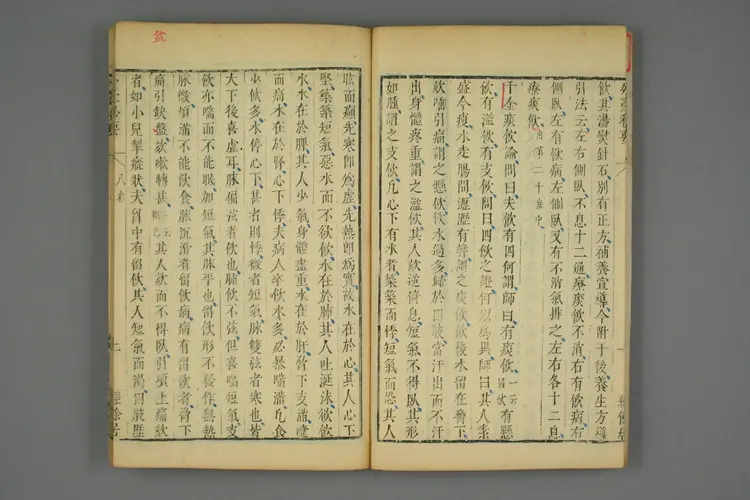 飲其湯熨針石別有正方補養宣導今附於後養生方導
引法云左右側臥不息十二通療痰飲不消右有飲病右
側臥左有飲病左側臥又有不消氣排之左右各十二息
療痰飲 出第二十卷中
千金痰飲論問曰夫飲有四何謂師曰有痰飲 一云留飲 有懸
飲有溢飲有支飲問曰四飲之證何以為異師曰其人素
盛今瘦水走腸間瀝瀝有聲謂之痰飲飲後水留在脅下
欬嗽引痛謂之懸飲飲水過多歸於四肢當汗出而不汗
出身體疼重謂之溢飲其人欬逆倚息短氣不得臥其形
如腫謂之支飲凡心下有水者築築而悸短氣而恐其人
眩而癲先寒即為虛先熱即為實故水在於心其人心下
堅築築短氣惡水而不欲飲水在於肺其人吐涎沫欲飲
水水在於脾其人少氣身體盡重水在於肝脅下支滿嚏
而痛水在於腎心下悸夫病人卒飲水多必暴喘滿凡食
少飲多水停心下甚者則悸微者短氣脉雙弦者寒也皆
大下後喜虛耳脉偏弦者飲也肺飲不弦但喜喘短氣支
飲亦喘而不能眠加短氣其脉平也留飲形不發作無熱
脉微煩滿不能飲食脉沉滑者留飲病病有留飲者脅下
痛引缺盆欬嗽轉甚 一云輒已 其人欬而不得臥引項上痛欬
者如小兒掣瘲狀夫胸中有留飲其人短氣而渴四肢歷
八卷
二
經餘居